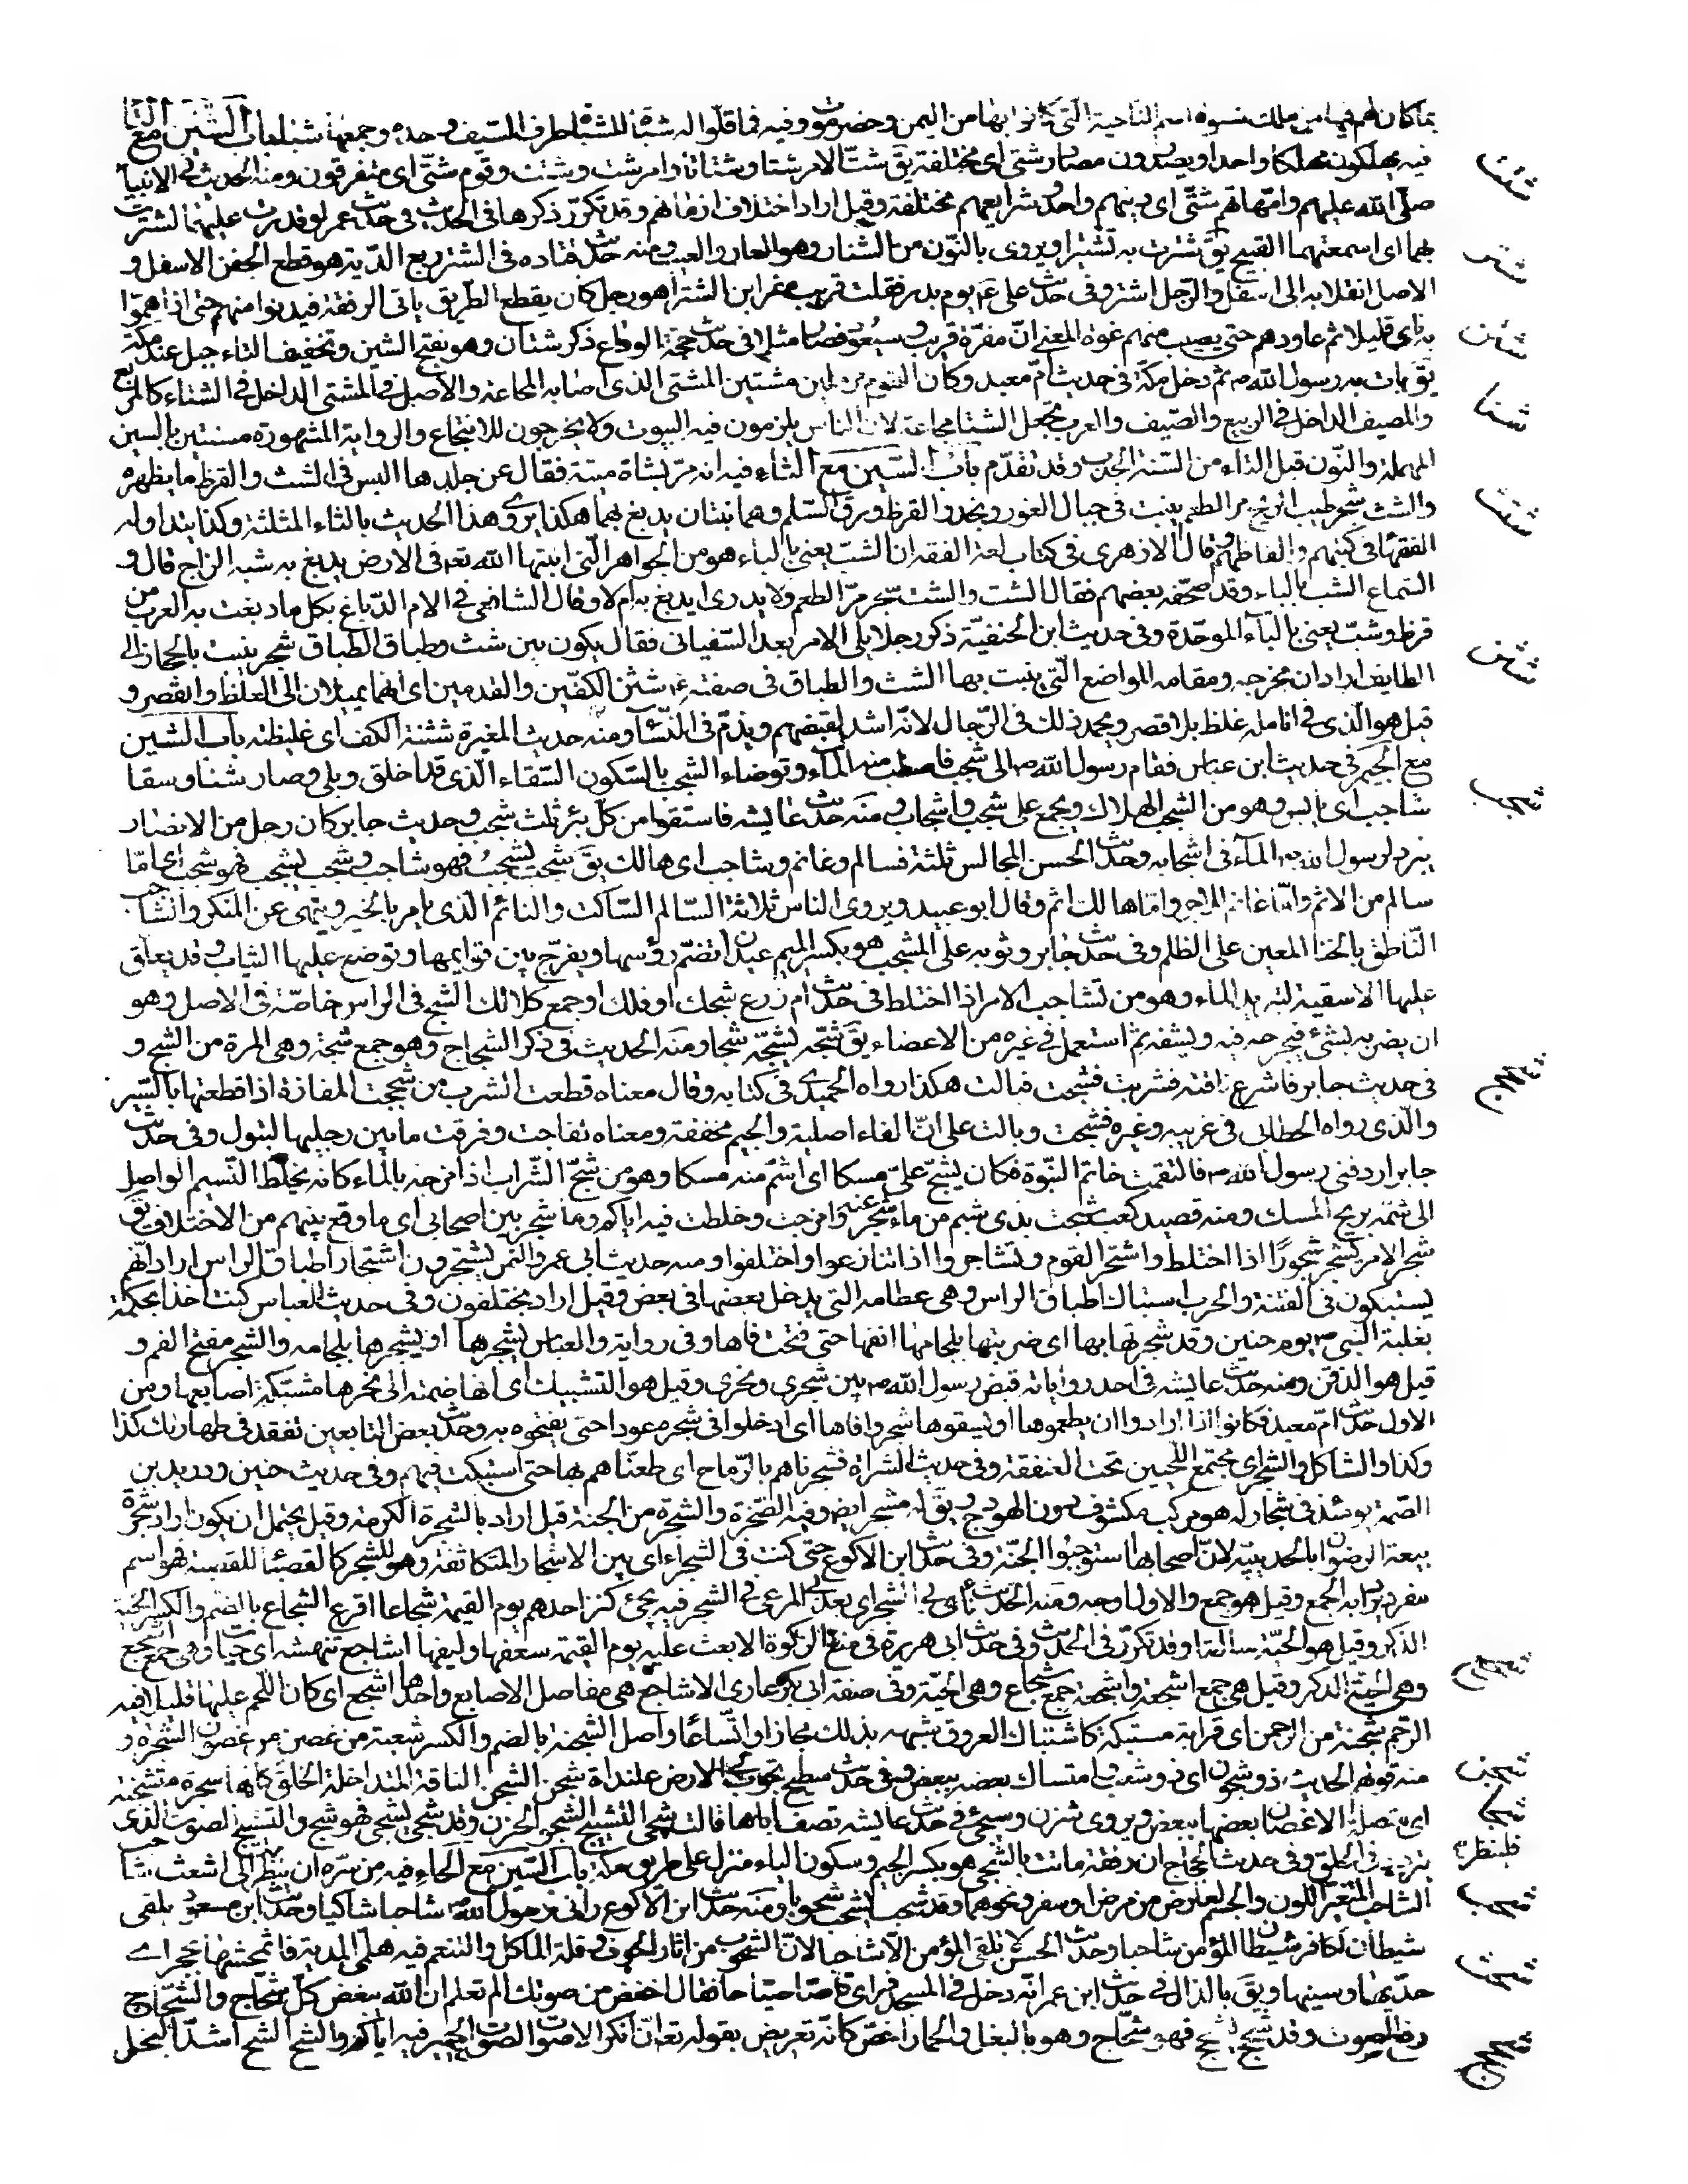 بما كان لهم فيها من ملك نسبوه اسم الناحية التى كانوا بها من اليمن وحضرموت وفيه فما قلوا له شباة الشباة طرف السيف وحده وجمعها شبا باب الشين مع التا
فيه يهلكون مهلكا واحدا ويصدرون مصادر شتى اى مختلفة يق شت الامر شتا وشتاتا وامر شت وشتت وقوم شتى اى متفرقون ومنه الحديث فى الانبيا
صلى الله عليهم وامهاتهم شتى اى دينهم واحد وشرايعهم مختلفة وقيل اراد اختلاف ازمانهم وقد تكرر ذكرها فى الحديث فى حديث عمر لو قدرت عليهما لشترت
بهما اى اسمعتهما القبيح يق شترت به تشتيرا ويروى بالنون من الشنار وهو العار والعيب ومنه حديث قتاده فى الشتر ربع الدية هو قطع الجفن الاسفل و
الاصل انقلابه الى اسفل والرجل اشتر وفى حديث على ع يوم بدر فقلت قريب مفر ابن الشترا هو رجل كان يقطع الطريق ياتى الرفقة فيدنوا منهم حتى اذا هموا
به ناى قليلا ثم عاودهم حتى يصيب منهم غرة المعنى ان مفره قريب وسيعود فصار مثلا فى حديث حجة الوداع ذكر شتان وهو بفتح الشين وتخفيف التاء جبل عند مكة
يق بات به رسول الله ص ثم دخل مكة فى حديث ام معبد وكان القوم مرملين مشتين المشتى الذى اصابه المجاعة والاصل فى المشتى الداخل فى الشتاء كالمربع
والمصيف الداخل فى الربيع والصيف والعرب تجعل الشتا مجاعة لان الناس يلزمون فيه البيوت ولا يخرجون للانتجاع والرواية المشهورة مسنتين بالسين
المهملة والنون قبل التاء من السنة الجدب وقد تقدم باب الشين مع الثاء فيه انه مر بشاة ميتة فقال عن جلدها اليس فى الشث والقرظ ما يطهره
والشث شجر طيب الريح مر الطعم ينبت فى جبال الغور ونجد والقرظ ورق السلم وهما نبتان يدبغ بهما هكذا يروى هذا الحديث بالثاء المثلثة وكذا يتداوله
الفقها فى كتبهم والفاظهم وقال الازهرى فى كتاب لغة الفقه ان الشب يعنى بالباء هو من الجواهر التى انبتها الله تعه فى الارض يدبغ به شبه الزاج قال و
السماع الشب بالباء وقد صحفه بعضهم فقال الشث والشث شجر مر الطعم ولا يدرى ايدبغ به ام لا وقال الشافعى فى الام الدباغ بكل ما دبغت به العرب من
قرظ وشب يعنى بالباء الموحدة وفى حديث ابن الحنفية ذكر رجلا يلى الامر بعد السفيانى فقال يكون بين شث وطباق الطباق شجر ينبت بالحجاز الى
الطايف اراد ان مخرجه ومقامه المواضع التى ينبت بها الشث والطباق فى صفته ع شثن الكفين والقدمين اى انهما يميلان الى الغلظ والقصر و
قيل هو الذى فى انامله غلظ بلا قصر ويحمد ذلك فى الرجال لانه اشد لقبضهم ويذم فى النساء ومنه حديث المغيرة شثنة الكف اى غليظته باب الشين
مع الجيم فى حديث ابن عباس فقام رسول الله ص الى شجب فاصطب منه الماء وتوضاء الشجب بالسكون السقاء الذى قد اخلق وبلى وصار شنا وسقا
شاجب اى يابس وهو من الشجب الهلاك ويجمع على شجب واشجاب ومنه حديث عايشه فاستقوا من كل بئر ثلث شجب وحديث جابر كان رجل من الانصار
يبرد لرسول الله ص الماء فى اشجابه وحديث الحسن المجالس ثلثة فسالم وغانم وشاجب اى هالك يق شجب يشجب فهو شاجب وشجب يشجب فهو شجب اى اما
سالم من الاثم واما غانم للاجر واما هالك اثم وقال ابو عبيد ويروى الناس ثلاثة السالم الساكت والغانم الذى يامر بالخير وينهى عن المنكر والشاجب
الناطق بالخنا المعين على الظلم وفى حديث جابر وثوبه على المشجب هو بكسر الميم عيدان تضم رؤسها ويفرج بين قوايمها وتوضع عليها الثياب وقد يعلق
عليها الاسقية لتبريد الماء وهو من تشاجب الامر اذا اختلط فى حديث ام زرع شجك او فلك او جمع كلا لك الشج فى الراس خاصة فى الاصل وهو
ان يضربه بشئ فيجرحه فيه ويشقه ثم استعمل فى غيره من الاعضاء يق شجه يشجه شجا ومنه الحديث فى ذكر الشجاج وهو جمع شجة وهى المرة من الشج و
فى حديث جابر فاشرع ناقته فشربت فشجت فبالت هكذا رواه الحميدى فى كتابه وقال معناه قطعت الشرب من شججت المفازة اذا قطعتها بالسير
والذى رواه الخطابى فى غريبه وغيره فشجت وبالت على ان الفاء اصلية والجيم مخففة ومعناه تفاجت وفرقت ما بين رجليها لتبول وفى حديث
جابر اردفنى رسول الله ص فالتقمت خاتم النبوة فكان يشج على مسكا اى اشم منه مسكا وهو من شج الشراب اذا مزجه بالماء كانه يخلط النسيم الواصل
الى شمه بريح المسك ومنه قصيد كعب شجت بذى شبم من ماء محنية اى مزجت وخلطت فيه اياكم وما شجر بين اصحابى اى ما وقع بينهم من الاختلاف يق
شجر الامر يشجر شجورا اذا اختلط واشتجر القوم وتشاجروا اذا تنازعوا واختلفوا ومنه حديث ابى عمرو النخعى يشتجرون اشتجار اطباق الراس اراد انهم
يشتبكون فى الفتنة والحرب اشتباك اطباق الراس وهى عظامه التى يدخل بعضها فى بعض وقيل اراد يختلفون وفى حديث العباس كنت اخذا بحكمة
بغلة النبى ص يوم حنين وقد شجرتها بها اى ضربتها بلجامها اكفها حتى فتحت فاها وفى رواية والعباس يشجرها او يشجرها بلجامه والشجر مفتح الفم و
قيل هو الذقن ومنه حديث عايشه فى احد رواياته قبض رسول الله ص بين شجرى ونحرى وقيل هو التشبيك اى انها ضمته الى نحرها مشبكة اصابعها ومن
الاول حديث ام معبد فكانوا اذا ارادوا ان يطعموها او يسقوها شجروا فاها اى ادخلوا فى شجره عودا حتى يفتحوه به وحديث بعض التابعين تفقد فى طهارتك كذا
وكذا والشاكل والشجر اى مجتمع اللحيين تحت العنفقة وفى حديث الشراة فشجرناهم بالرماح اى طعناهم بها حتى اشتبكت فيهم وفى حديث حنين ودريد بن
الصمة يومئذ فى شجار له هو مركب مكشوف دون الهودج ويق له مشجر ايضا وفيه الصخرة والشجرة من الجنة قيل اراد بالشجرة الكرمة وقيل يحتمل ان يكون اراد شجرة
بيعة الرضوان بالحديبية لان اصحابها استوجبوا الجنة وفى حديث ابن الاكوع حتى كنت فى الشجراء اى بين الاشجار المتكاثفة وهو للشجر كالقصباء للقصبة فهو اسم
مفرد يراد به الجمع وقيل هو جمع والاول اوجه ومنه الحديث ناى بى الشجر اى بعد بى المرعى فى الشجر فيه يجئ كنز احدهم يوم القيمة شجاعا اقرع الشجاع بالضم والكسر الحية
الذكر وقيل هو الحية مطلقا وقد تكرر فى الحديث وفى حديث ابى هريرة فى منع الزكوة الا بعث عليه يوم القيمة سعفها وليفها اشاجع تنهشه اى حيات وهى جمع اشجع
وهى الحية الذكر وقيل هى جمع اشجعة واشجعة جمع شجاع وهى الحية وفى صفة ابى بكر عارى الاشاجع هى مفاصل الاصابع واحدها اشجع اى كان اللحم عليها قليلا فيه
الرحم شجنة من الرحمن اى قرابة مشتبكة كاشتباك العروق شبهه بذلك مجازا واتساعا واصل الشجنة بالضم والكسر شعبة من غصن من غصون الشجرة و
منه قولهم الحديث ذو شجون اى ذو شعب وامتساك بعضه ببعض وفى حديث سطيح تجوب بى الارض علنداة شجن الشجن الناقة المتداخلة الخلق كانها شجرة متشجنة
اى متصلة الاغصان بعضها ببعض ويروى شزن وسيجئ فى حديث عايشه تصف اباها قالت شجى النشيج الشجو الحزن وقد شجى يشجى فهو شج والنشيج الصوت الذى
يتردد فى الحلق وفى حديث الحجاج ان رفقة ماتت بالشجى هو بكسر الجيم وسكون الياء منزل على طريق مكة باب الشين مع الحاء فيه من سره ان ينظر الى فلينظر الى اشعث شاحب
الشاحب المتغير اللون والجسم لعارض من مرض او سفر ونحوهما وقد شحب يشحب شحوبا ومنه حديث ابن الاكوع رانى رسول الله ص شاحبا شاكيا وحديث ابن مسعود يلقى
شيطان الكافر شيطان المؤمن شاحبا وحديث الحسن لا تلقى المؤمن الا شاحبا لان الشحوب من اثار الخوف وقلة الماكل والتنعم فيه هلمى المدية فاشحثيها بحجر اى
حديها وسنيها ويق بالذال فى حديث ابن عمر انه دخل فى المسجد فراى قاصا صياحا فقال اخفض من صوتك الم تعلم ان الله يبغض كل شحاج والشحاج
رفع الصوت وقد شحج يشحج فهو شحاج وهو بالبغل والحمار اخص كانه تعريض بقوله تعه ان انكر الاصوات لصوت الحمير فيه اياكم والشح الشح اشد البخل
شتت
شتر
شتن
شتا
شثث
شثن
شجب
شجج
شجع
شجن
شجا
فلينظر
شحب
شحث
شحج